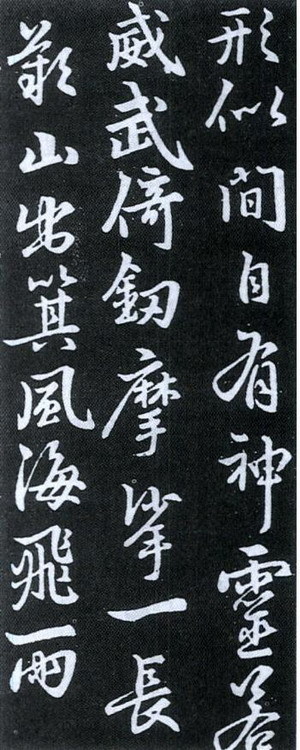 形似間自有神靈
威武倚劒摩挲一長
歎山出箕風海飛雨